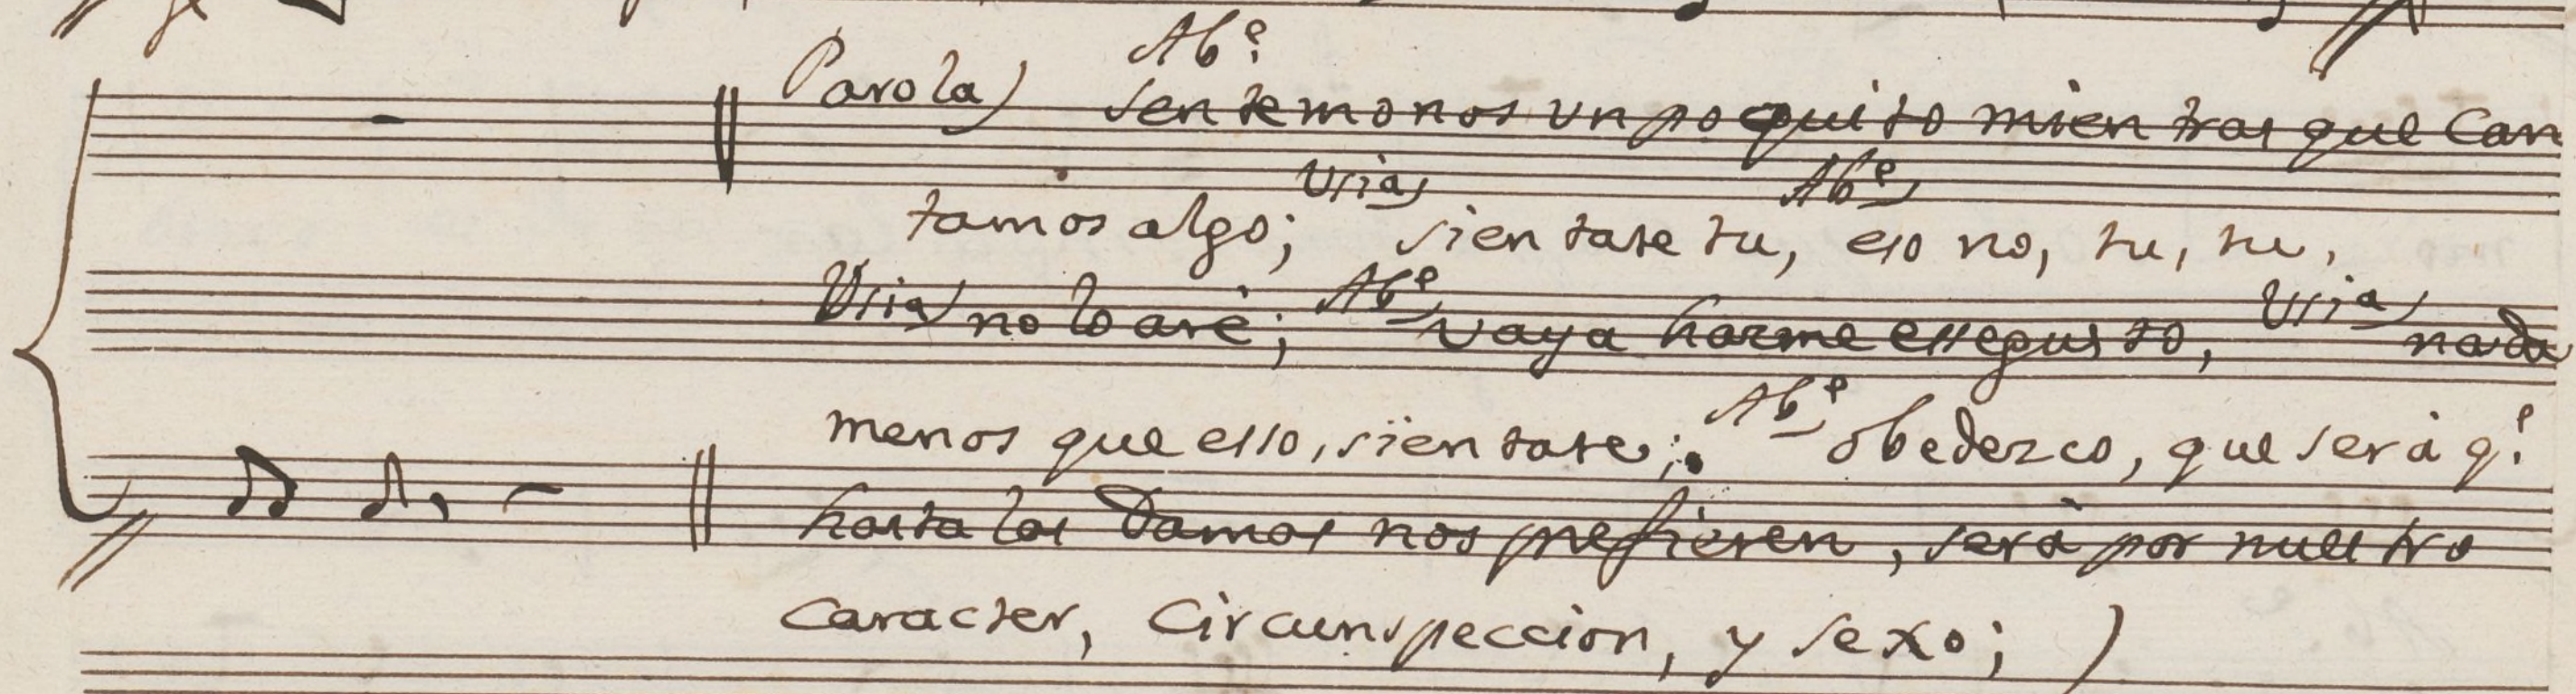 Parola) Ab.e Sentemonos un poquito mientras que Can
tamos algo; Usia) sientate tu, Ab.e) eso no, tu, tu,
Usia) no lo aré; Ab.e vaya hazme esse gusto, Usia) nada
menos que esso, sientate; Ab.e obedezco, que será q.e
hasta las Damas nos prefieren, será por nuestro
Caracter, Circunspeccion, y Sexo; )